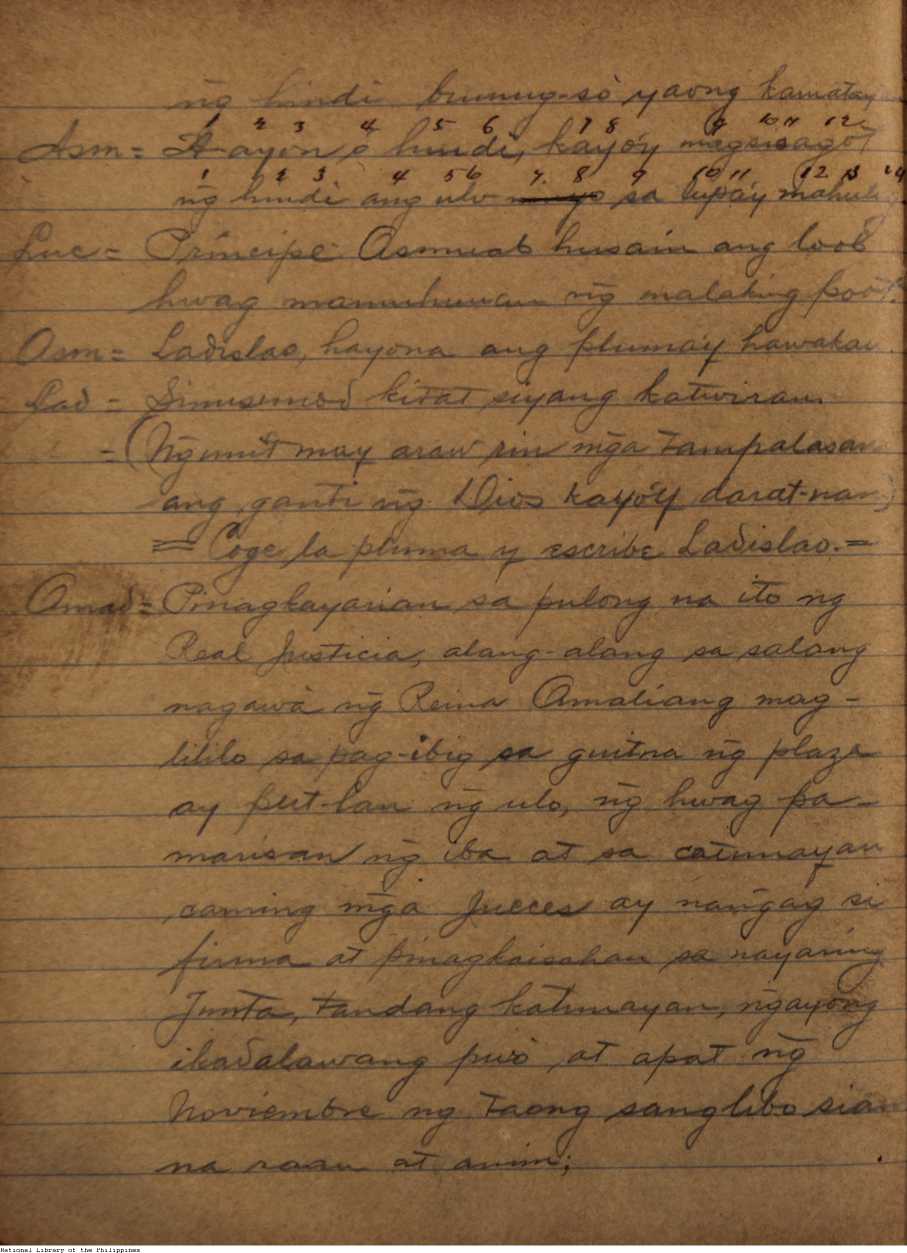 ng̃ hindi bumug-sò yaong kamatay
1 2 3 4 5 6 7 8 9 10 11 12
Asm = A-ayon ó hindi, kayo'y magsisagot
1 2 3 4 5 6 7 8 9 10 11 12 13 14
ng̃ hindi ang ulo sa lupa'y mahulog
Luc = Principe Asmuab husain ang loob
hwag mamuhunan ng̃ malaking poot.
Asm = Ladislao, hayona ang pluma'y hawakan.
Lad = Sinusunod kita't siyang katwiran.
= (Ng̃unit may araw rin mg̃a tampalasan
ang ganti ng̃ Dios kayo'y darat-nan)
= Coge la pluma y escribe Ladislao. =
Amad = Pinagkayarian sa pulong na ito ng
Real Justicia, alang-alang sa salang
nagawà ng̃ Reina Amaliang mag-
lililo sa pag-ibig sa guitna ng̃ plaza
ay put-lan ng̃ ulo, ng̃ hwag pa-
marisan ng̃ iba at sa catunayan
caming mg̃a Jueces ay nang̃ag si
firma at pinagkaisahan sa nayaring
Junta, tandang katunayan, ng̃ayong
ikadalawang può at apat ng̃
Noviembre ng taong sanglibo siam
na raan at anim;
National Library of the Philippines